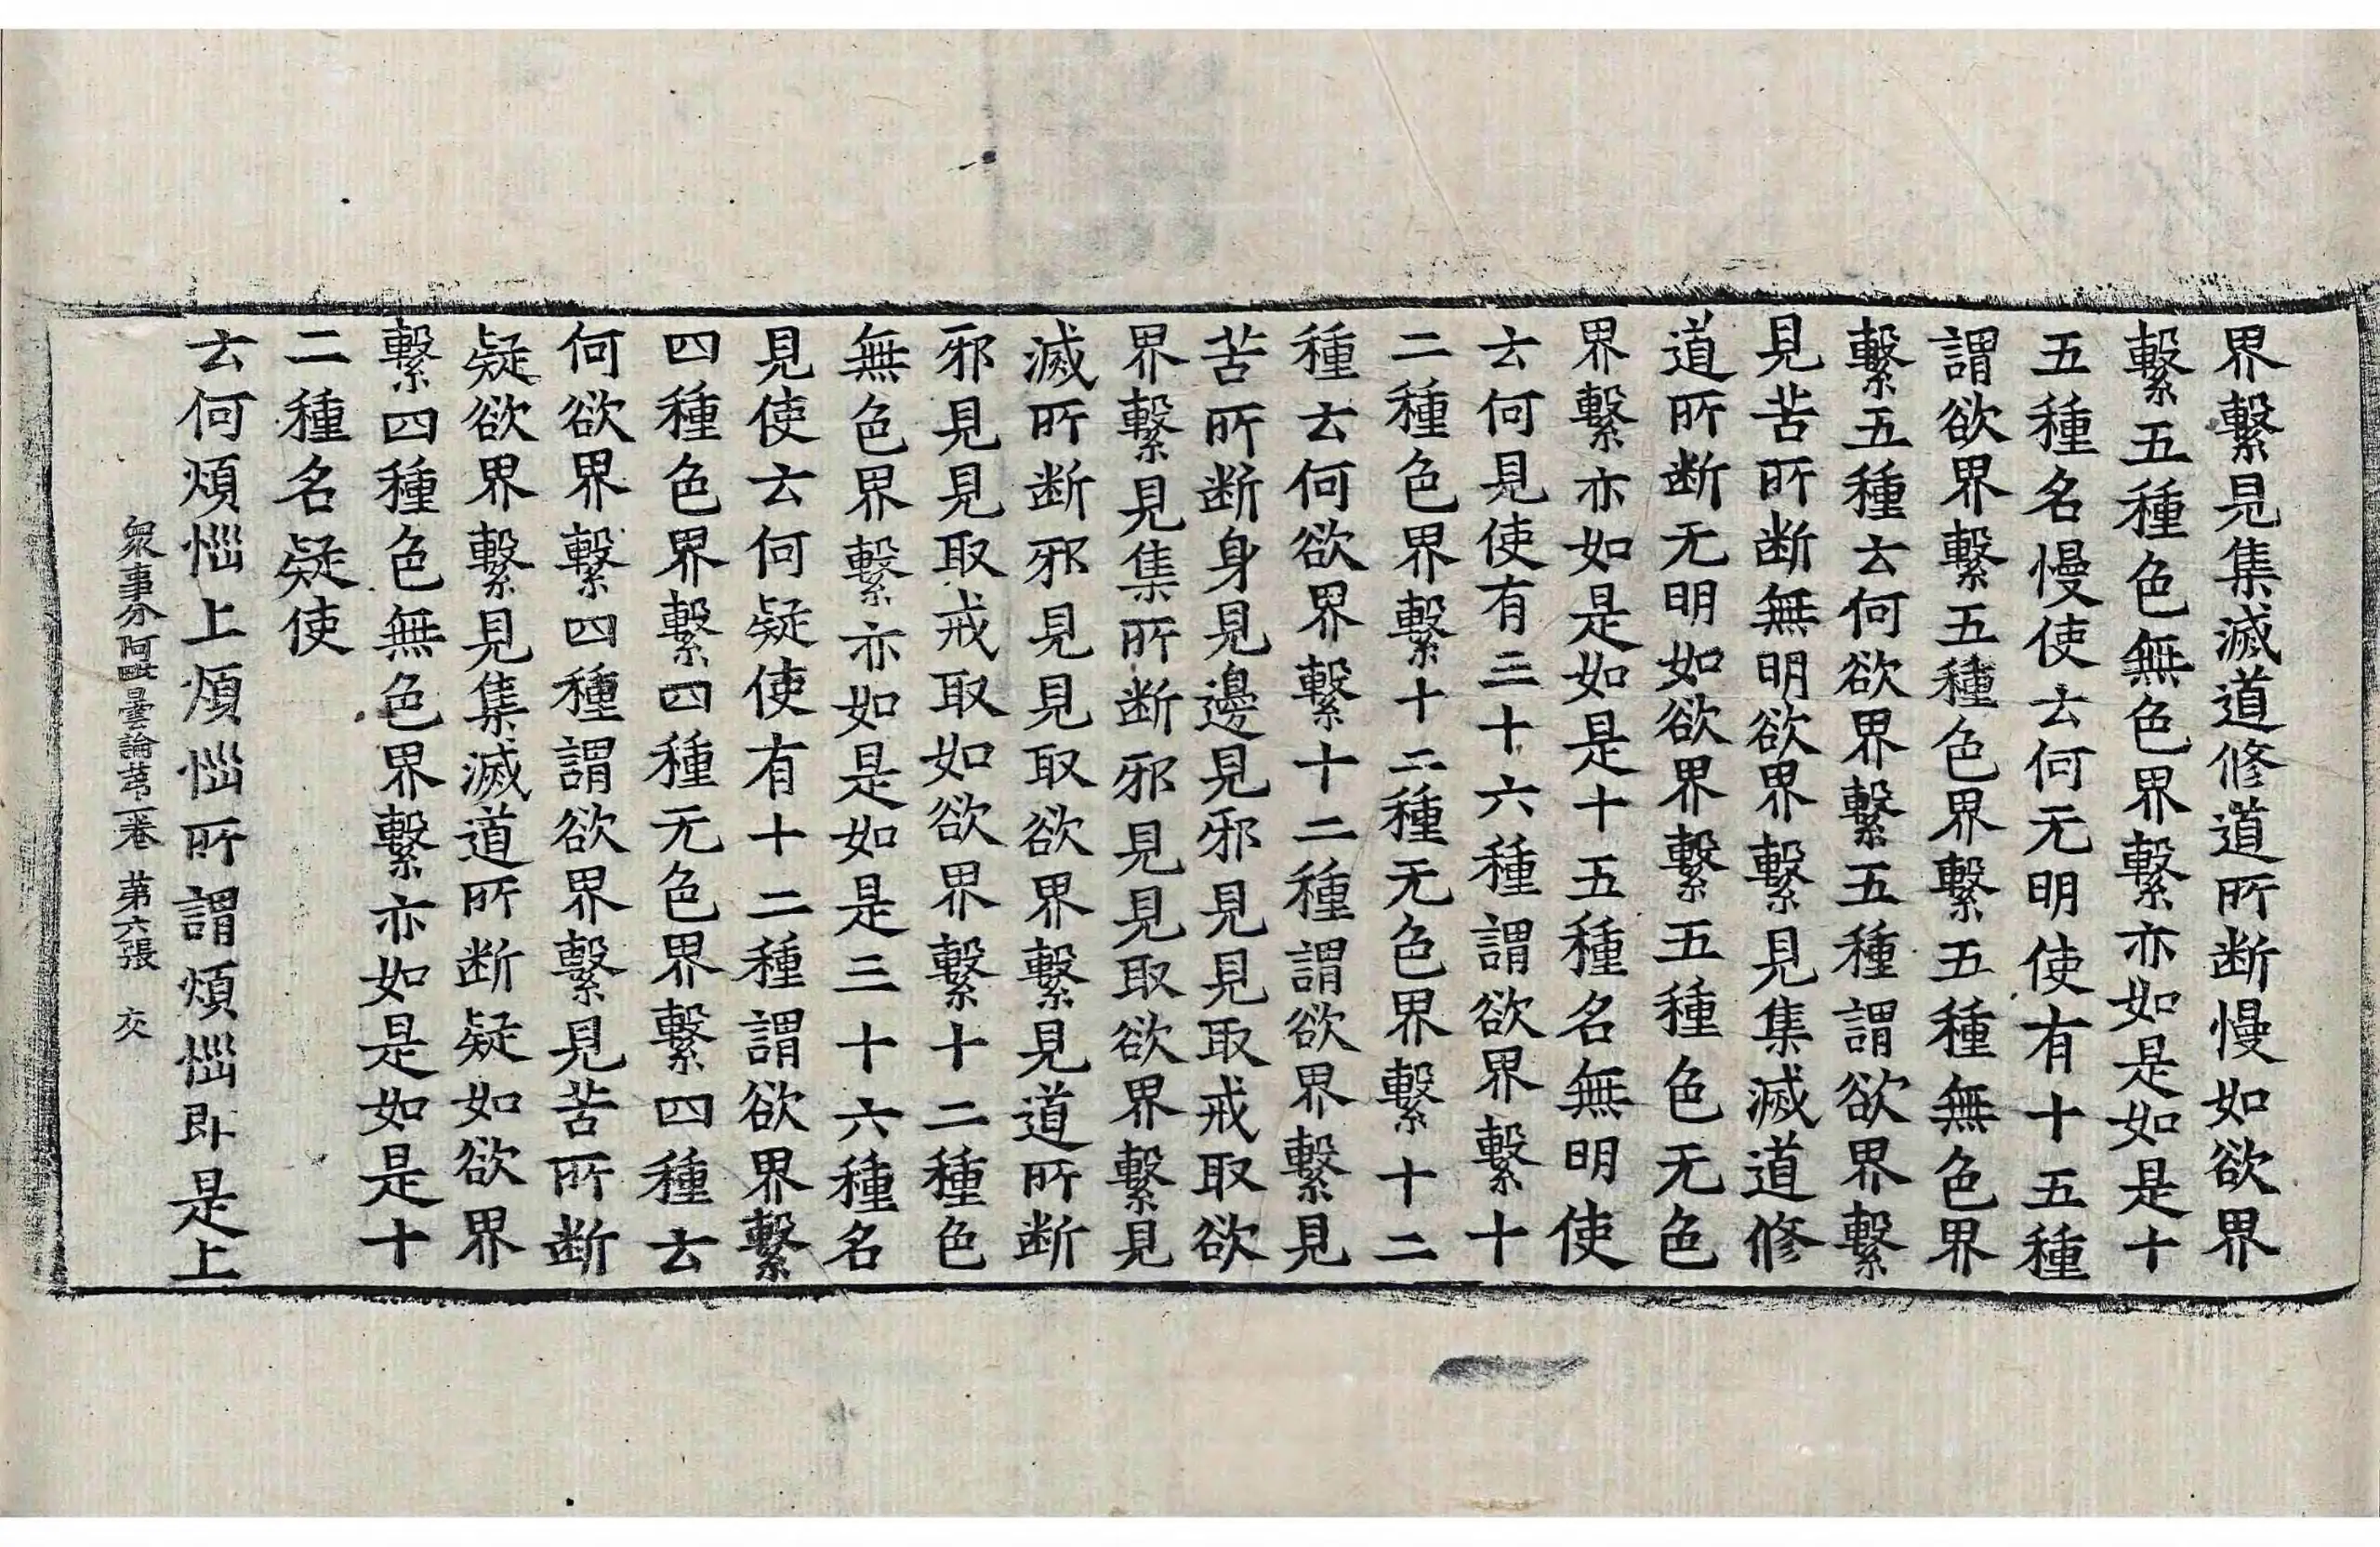 界繫見集滅道修道所断慢如欲界
繫五種色無色界繫亦如是如是十
五種名慢使云何无明使有十五種
謂欲界繫五種色界繫五種無色界
繫五種云何欲界繫五種謂欲界繫
見苦所断無明欲界繫見集滅道修
道所断无明如欲界繫五種色无色
界繫亦如是如是十五種名無明使
云何見使有三十六種謂欲界繫十
二種色界繫十二種无色界繫十二
種云何欲界繫十二種謂欲界繫見
苦所断身見邊見邪見見取戒取欲
界繫見集所断邪見見取欲界繫見
滅所断邪見見取欲界繫見道所断
邪見見取戒取如欲界繫十二種色
無色界繫亦如是如是三十六種名
見使云何疑使有十二種謂欲界繫
四種色界繫四種无色界繫四種云
何欲界繫四種謂欲界繫見苦所断
疑欲界繫見集滅道所断疑如欲界
繫四種色無色界繫亦如是如是十
二種名疑使
云何煩惱上煩惱所謂煩惱即是上
衆事分阿毗曇論苐二卷 第六張 交